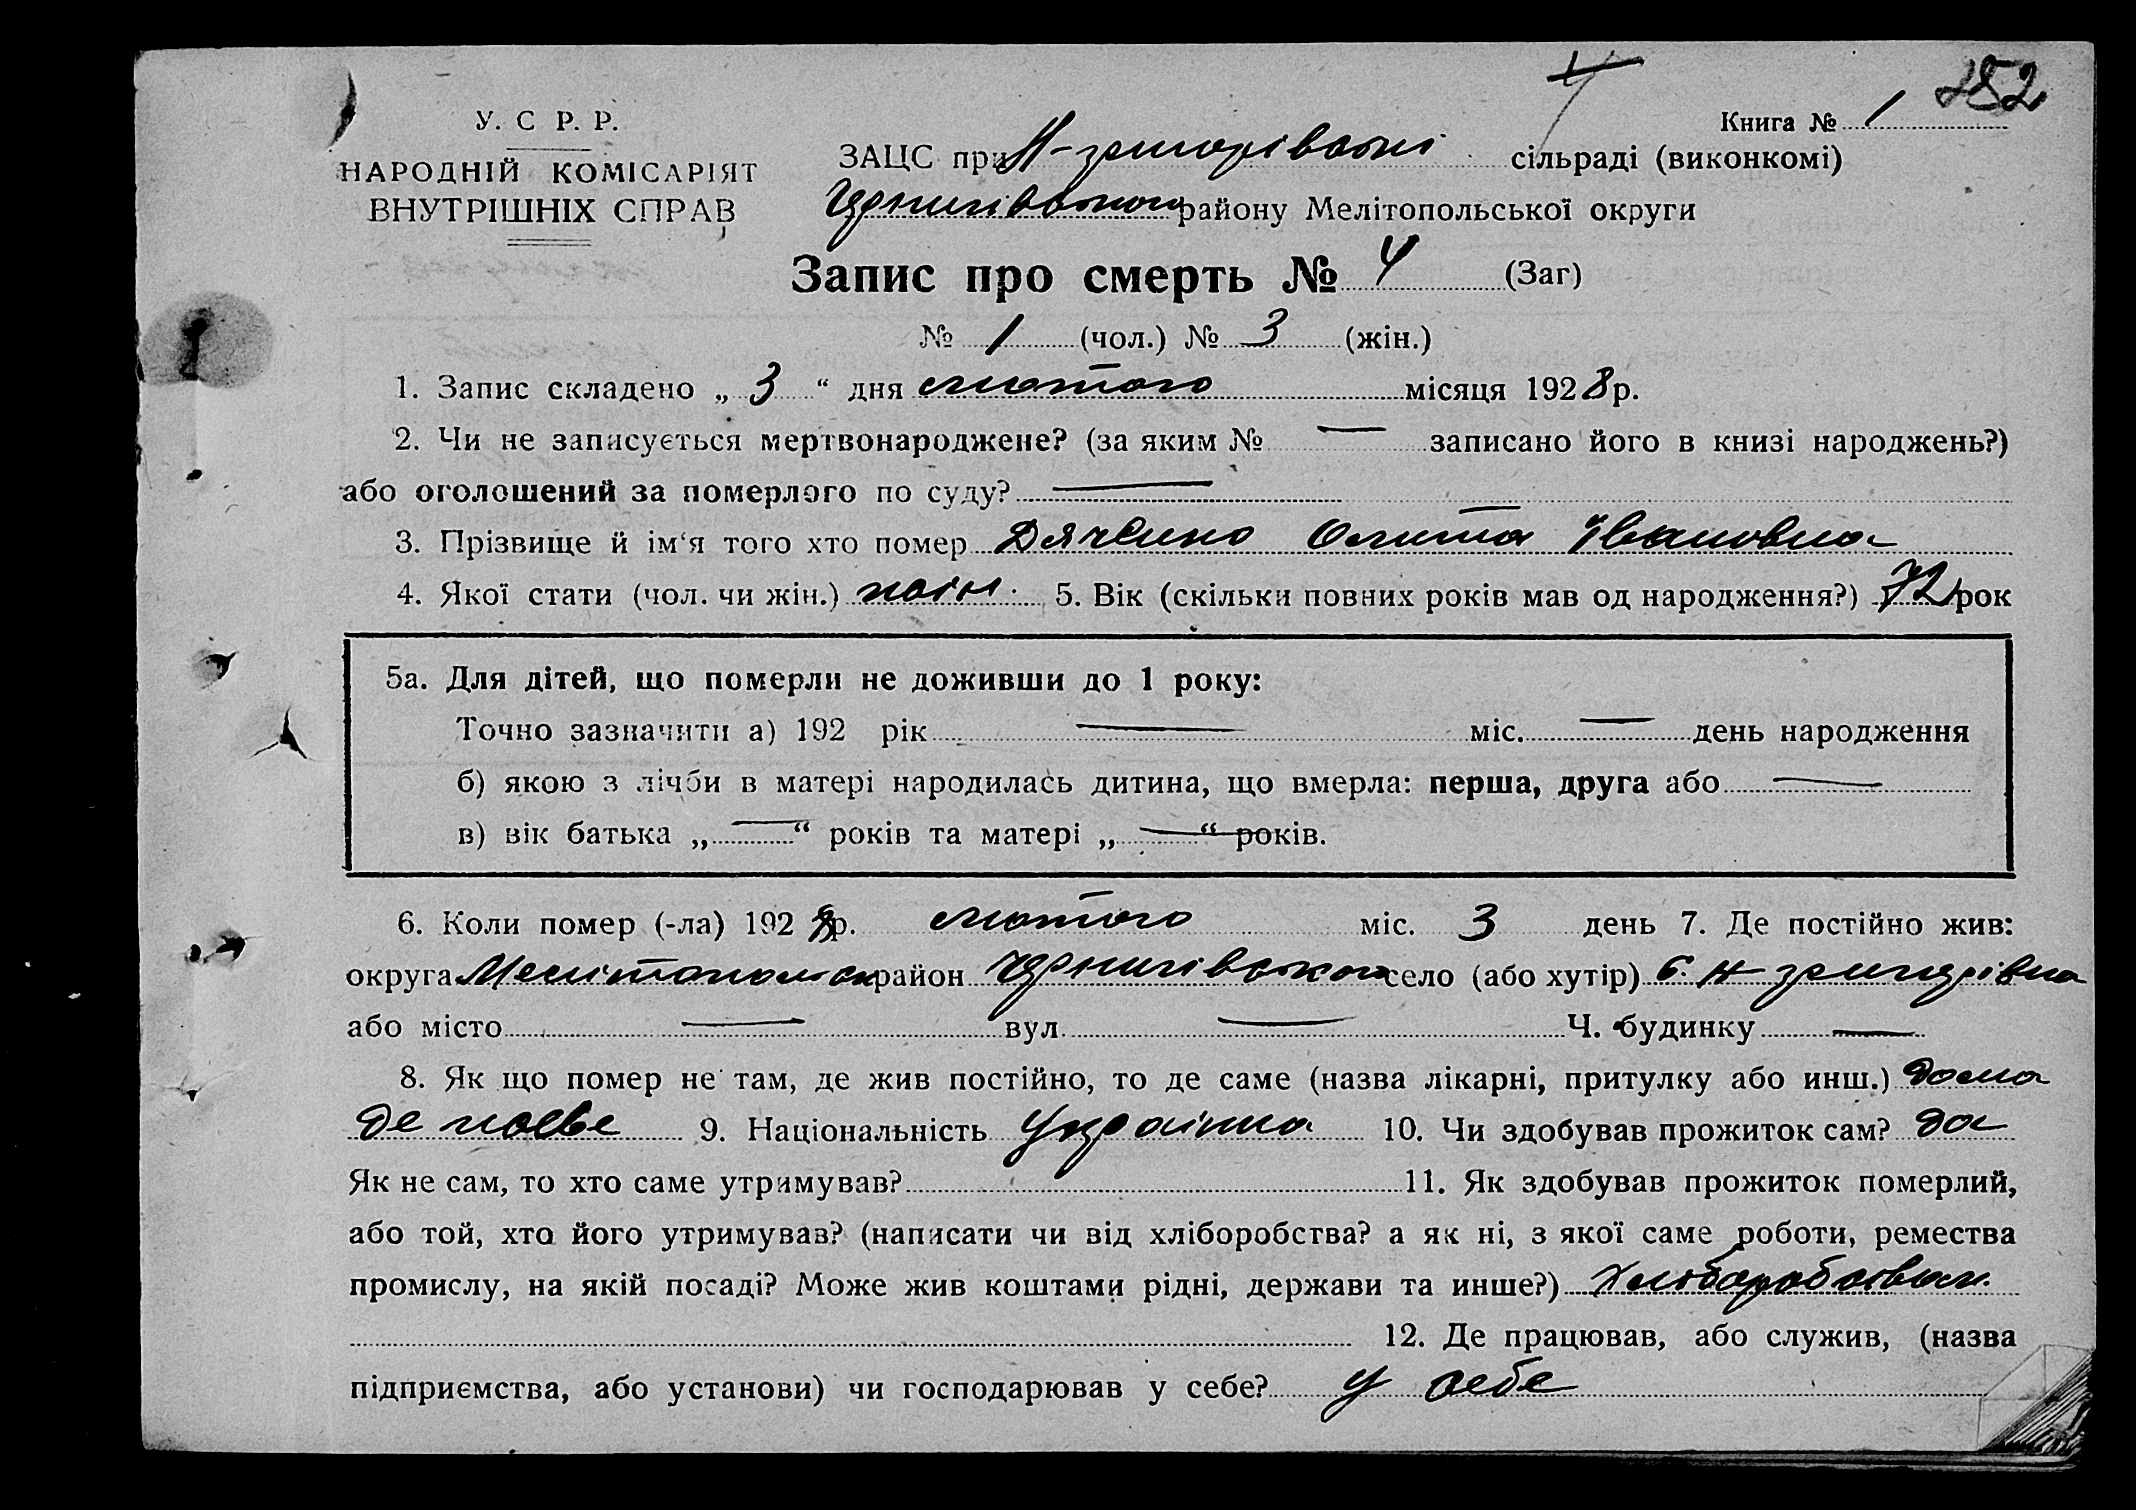 252
4
У. С Р. Р.
НАРОДНІЙ КОМІСАРІЯТ
ВНУТРІШНІХ СПРАВ
Книга № 1
ЗАЦС при сільраді (виконкомі)
Чернигівського району Мелітопольської округи
Запис про смерть № 4 (Заг)
№ 1 (чол.) № 3 (жін.)
1. Запис складено „ 3 “ дня лютого місяця 1928 р.
2. Чи не записується мертвонароджене? (за яким № — записано його в книзі народжень?)
або оголошений за померлого по суду? —
3. Прізвище й ім‘я того хто помер Дяченко Івановна
4. Якої стати (чол. чи жін.) жін. 5. Вік (скільки повних років мав од народження?) 72 рок
5а. Для дітей, що померли не доживши до 1 року:
Точно зазначити а) 192 рік — міс. — день народження
б) якою з лічби в матері народилась дитина, що вмерла: перша, друга або —
в) вік батька „ — “ років та матері „ — “ років.
6. Коли помер (-ла) 1928 р. лютого міс. 3 день 7. Де постійно жив:
округа Мелітопольск район Чернигівського село (або хутір) с.
або місто — вул. — Ч. будинку —
8. Як що помер не там, де жив постійно, то де саме (назва лікарні, притулку або инш.) дома
де живе 9. Національність Українка 10. Чи здобував прожиток сам? да
Як не сам, то хто саме утримував? 11. Як здобував прожиток померлий,
або той, хто його утримував? (написати чи від хліборобства? а як ні, з якої саме роботи, ремества
промислу, на якій посаді? Може жив коштами рідні, держави та инше?)
12. Де працював, або служив, (назва
підприємства, або установи) чи господарював у себе? у себе